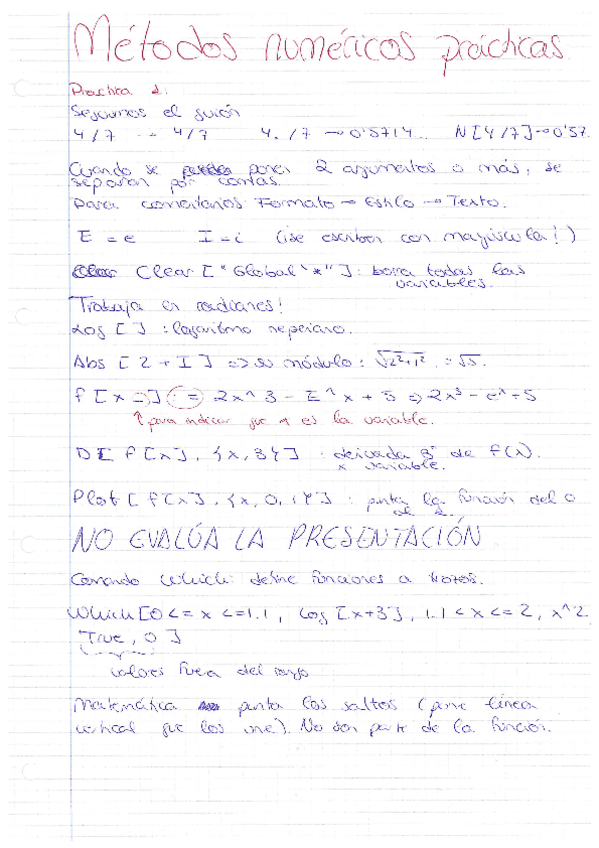 Métodos numéricos prácticas
Práctica 1:
Seguimos el guión
4/7 → 4/7    4. /7 → 0'5714...    N[4/7] → 0'57.
Cuando se poner 2 argumentos o más, se
separan por comas.
Para comentarios Formato → Estilo → Texto.
E = e    I = i    (¡se escriben con mayúscula!)
Clear ["Global`*"]: borra todas las
variables.
Trabaja en radianes!
Log [ ] : logaritmo neperiano.
Abs [2 + I] => su módulo: √2²+1² = √5.
f [x_] := 2x^3 - E^x + 5 => 2x³ - eˣ + 5
↑ para indicar que x es la variable.
D[ f[x], {x,3}] : derivada 3ª de f(x).
x variable.
Plot [ f[x], {x, 0, 1}] : pinta la función del 0
al 1.
NO EVALÚA LA PRESENTACIÓN
Comando Which: define funciones a trozos.
Which[0 <= x <= 1.1, Log [x+3], 1.1 < x <= 2, x^2,
True, 0 ]
valores fuera del rango
Matemática pinta los saltos (pone línea
vertical que los une). No son parte de la función.